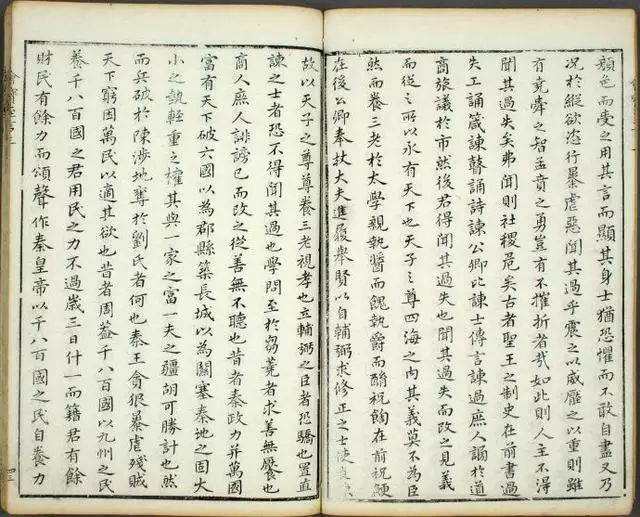 顔色而受之用其言而顯其身士猶恐懼而不敢自盡又乃
况於縱欲恣行暴虐惡聞其過乎震之以威壓之以重則雖
有堯舜之智孟賁之勇豈有不摧折者哉如此則人主不得
聞其過失矣弗聞則社稷危矣古者聖王之制史在前書過
失工誦箴諫瞽誦詩諫公卿比諫士傳言諫過庶人謗於道
商旅議於市然後君得聞其過失也聞其過失而改之見義
而從之所以永有天下也天子之尊四海之內其義莫不為臣
然而養三老於太學親執醬而餽執爵而酳祝餉在前祝鯁
在後公卿奉杖大夫進履舉賢以自輔弼求修正之士使直
故以天子之尊尊養三老視孝也立輔弼之臣者恐驕也置直
諫之士者恐不得聞其過也學問至於芻蕘者求善無饜也
商人庶人誹謗已而改之從善無不聽也昔者秦政力并萬國
富有天下破六國以為郡縣築長城以為關塞秦地之固大
小之勢輕重之權其與一家之富一夫之彊胡可勝計也然
而兵破於陳涉地奪於劉氏者何也秦王貪狠暴虐殘賊
天下窮困萬民以適其欲也昔者周葢千八百國以九州之民
養千八百國之君用民之力不過歲三日什一而籍君有餘
財民有餘力而頌聲作秦皇帝以千八百國之民自養力